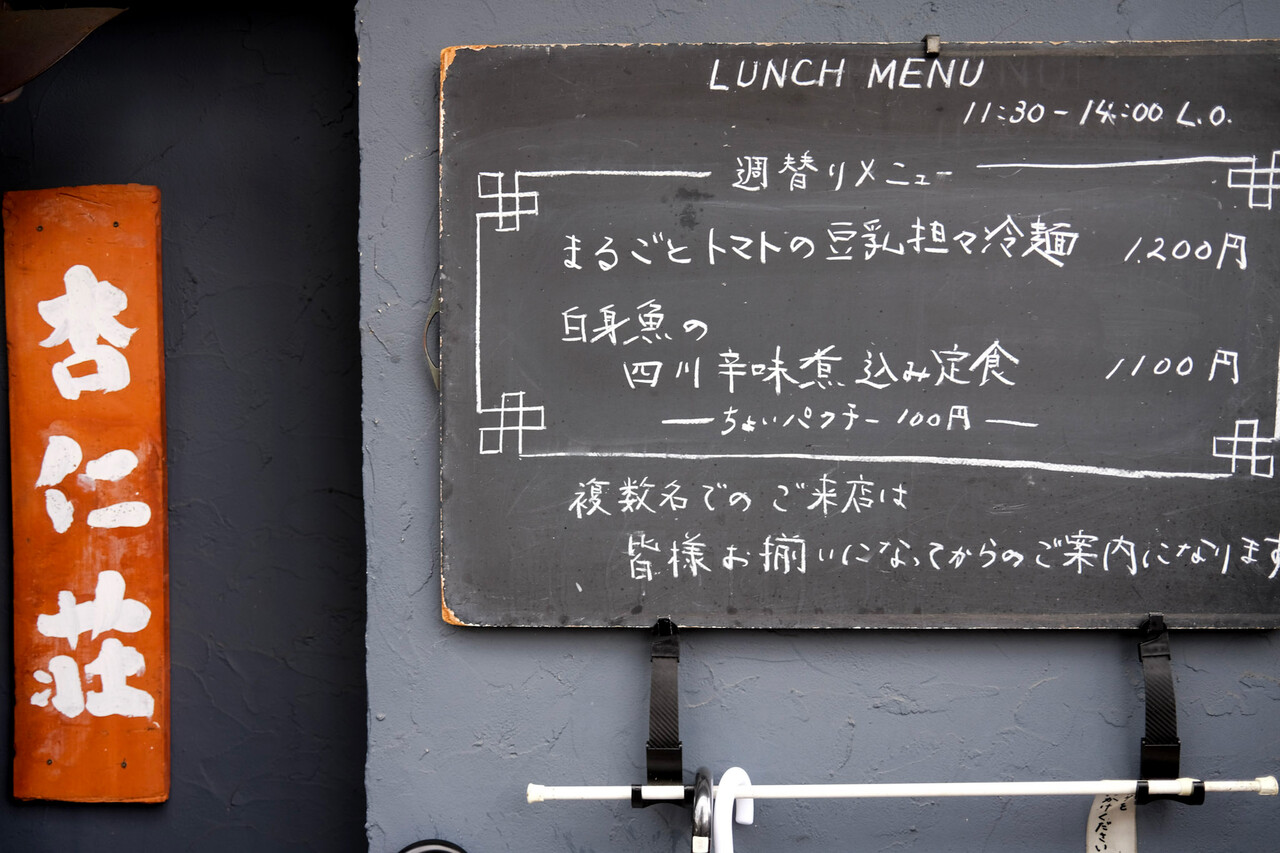 杏仁荘
LUNCH MENU
11:30-14:00 L.O.
週替りメニュー
まるごとトマトの豆乳担々冷麺 1,200円
白身魚の
四川辛味煮込み定食 1100円
ーちょいパクチー 100円ー
複数名でのご来店は
皆様お揃いになってからのご案内になります
かけください